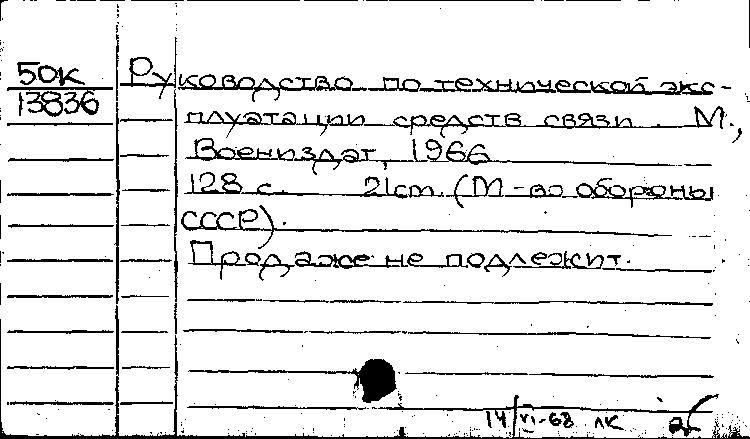 50К Руководство по технической экс-
13836 плуатации средств связи. М.,
Воениздат, 1966
128 с. 21cm. (М-во обороны
СССР).
Продаже не подлежит.
14/VI-68 лк